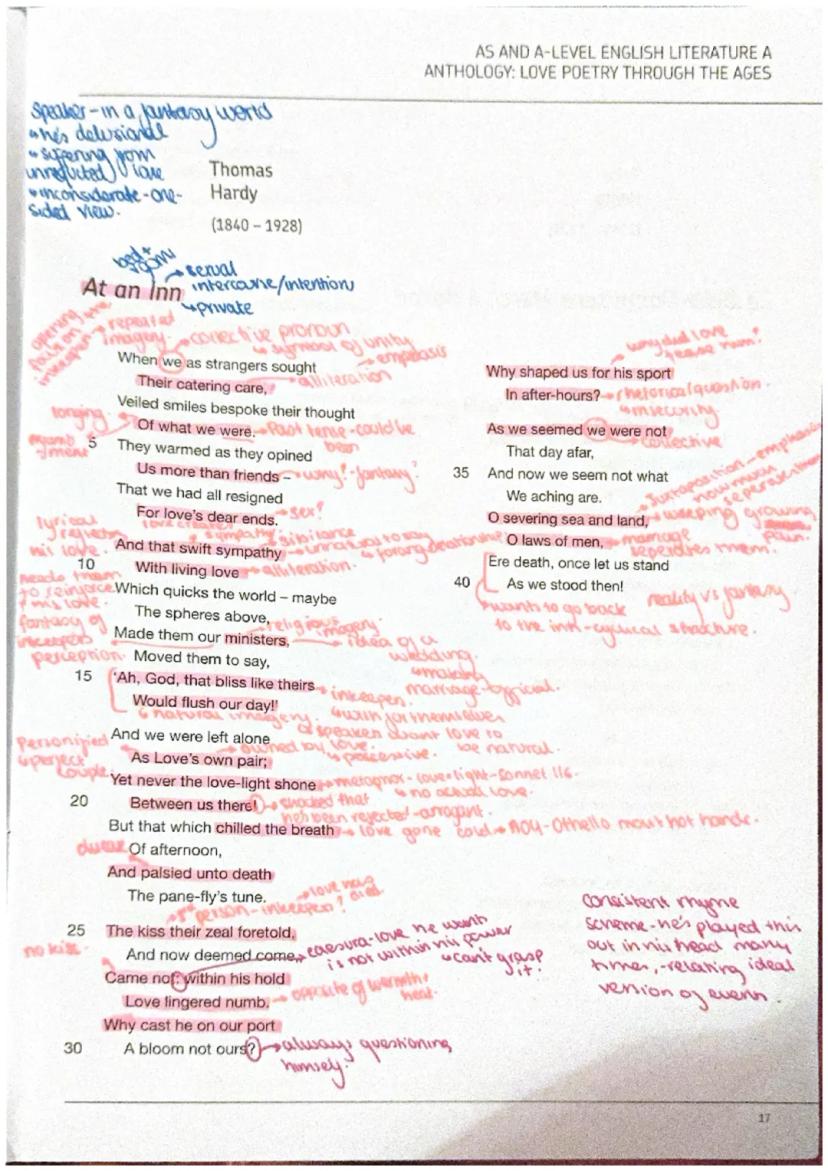 AS AND A-LEVEL ENGLISH LITERATURE A
ANTHOLOGY: LOVE POETRY THROUGH THE AGES
Speaker - in a fantasy world
he's delusional
suffering from
unrequited love
inconsiderate - one-
sided view.
Thomas
Hardy
(1840 – 1928)
bed + room
sexual
intercourse/intention
private
At an Inn
opening
focus on the
innkeeper
repeated
imagery
collective pronoun
symbol of unity
emphasis
When we as strangers sought
Their catering care, alliteration
Veiled smiles bespoke their thought
longing
Of what we were. Past tense - could've
been
enjamb
-ment
5 They warmed as they opined
Us more than friends – why? - fantasy?
That we had all resigned
For love's dear ends. sex?
lyrical
his love.
love creates
sympathy
sibilance
And that swift sympathy unnatural to say
10 With living love alliteration.
needs them
to reinforce
his love.
Which quicks the world – maybe
The spheres above,
fantasy of
innkeepers
perception.
religious imagery.
Made them our ministers, idea of a
wedding.
making
marriage official.
Moved them to say,
15 'Ah, God, that bliss like theirs innkeeper.
Would flush our day!' wish for themselves
natural imagery.
speaker want love to
be natural.
And we were left alone
Personified
perfect
couple
owned by love.
possessive.
As Love's own pair;
Yet never the love-light shone metaphor - love = light - Sonnet 116.
no actual love.
20 Between us there! shocked that
he's been rejected - arrogant.
But that which chilled the breath love gone cold AO4 - Othello moist hot hands.
Of afternoon,
And palsied unto death
The pane-fly's tune. love has
died.
person - innkeeper?
25 The kiss their zeal foretold,
no kiss.
And now deemed come, caesura - love he wants
is not within his power
can't grasp
it!
Came not: within his hold
Love lingered numb. opposite of warmth +
heat.
Why cast he on our port
30 A bloom not ours? always questioning
himself.
why did love
tease him?
Why shaped us for his sport
In after-hours? rhetorical question.
insecurity
As we seemed we were not
collective
That day afar,
35 And now we seem not what
We aching are.
Juxtaposition - emphasis
how much
seperate
O severing sea and land, weeping growing
pain.
O laws of men, marriage
seperates them!
Ere death, once let us stand
40 As we stood then!
reality vs fantasy
wants to go back
to the inn - cyclical structure.
consistent rhyme
scheme - he's played this
out in his head many
times, - relating ideal
version of events.
17